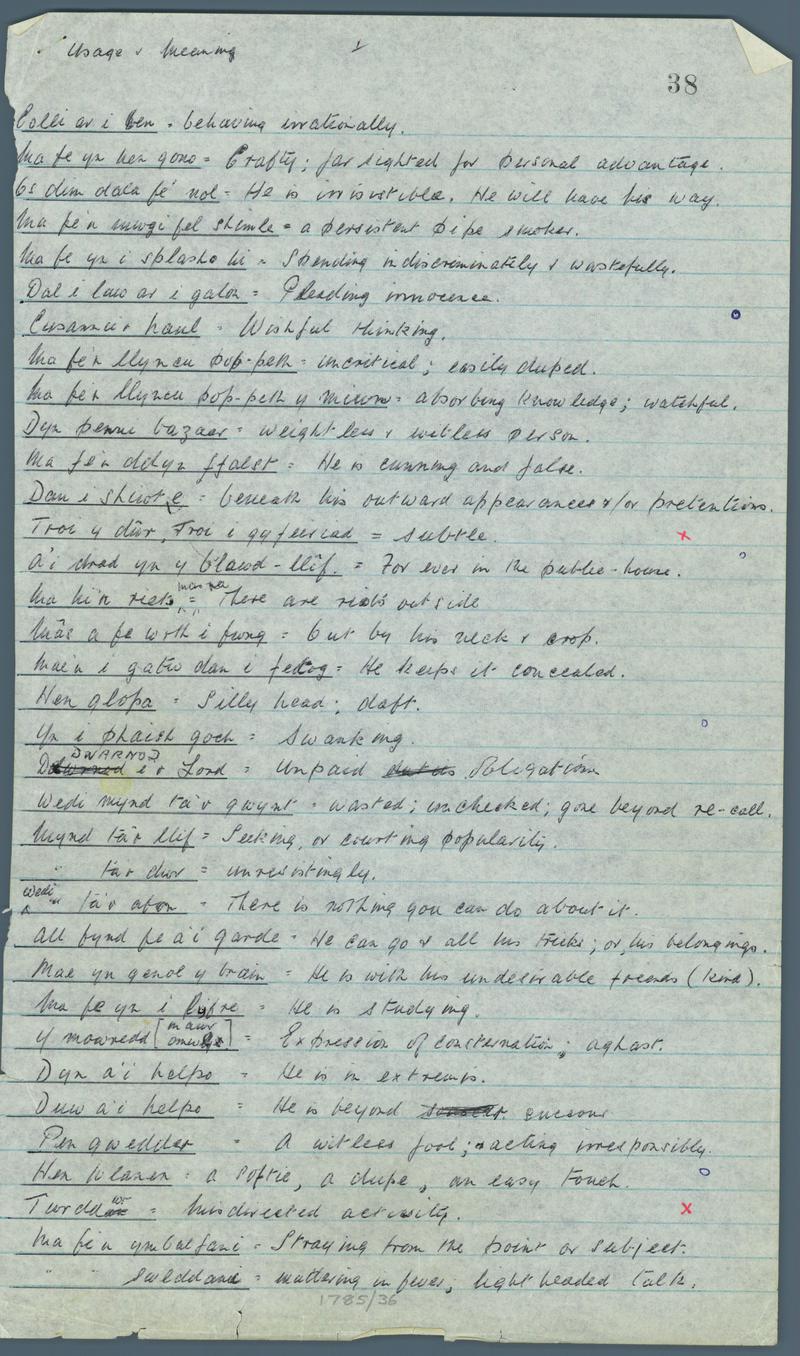 Usage & Meaning 1
38
Colli ar i ben = behaving irrationally.
Ma fe yn hen gono = Crafty; far sighted for personal advantage.
Os dim dala fe' nol = He is irrisistible. He will have his way.
Ma fe'n mwgi fel shimle = a persistent pipe smoker.
Ma fe yn i splasho hi = Spending indiscriminately & wastefully.
Dal i law ar i galon = Pleading innocence.
Cusannu'r haul = Wishful thinking.
Ma fe'n llyncu pop-peth = uncritical; easily duped.
Ma fe'n llyncu pop-peth y miwn = absorbing knowledge; watchful.
Dyn penni bazaar = weightless & witless person.
Ma fe'n ddyn ffalst = He is cunning and false.
Dan i shwt e = beneath his outward appearances &/or pretentions.
Troi y dŵr, Troi i gyfeiriad = subtle. x
A'i drad yn y blawd-llif. = For ever in the public-house.
Ma hi'n riets mas na = There are riots outside
Mâs a fe worth i fwng = Out by his neck & crop.
Mae'n i gatw dan i fedog = He keeps it concealed.
Hen glopa = Silly head; daft.
Yn i phaish goch = Swanking.
DWARNOD i'r Lord = Unpaid obligation
Wedi mynd da'r gwynt = wasted; unchecked; gone beyond re-call.
Mynd da'r llif = Seeking, or courting popularity.
" da'r dwr = unresistingly.
Wedi " da'r afon = There is nothing you can do about it.
All fynd fe a'i garde = He can go & all his tricks; or, his belongings.
Mae yn genol y brain = He is with his undesirable friends (kind).
Ma fe yn i lyfre = He is studying.
Y mowredd [mawr ] = Expression of consternation; aghast.
Dyn a'i helpo = He is in extremis.
Duw a'i helpo = He is beyond succour
Pen gwedder = A witless fool; acting irresponsibly.
Hen wlanen = a softie, a dupe, an easy touch.
= Misdirected activity. x
Ma fe'n ymbalfani = Straying from the point or subject.
" " = muttering in fever; light headed talk.
1785/36